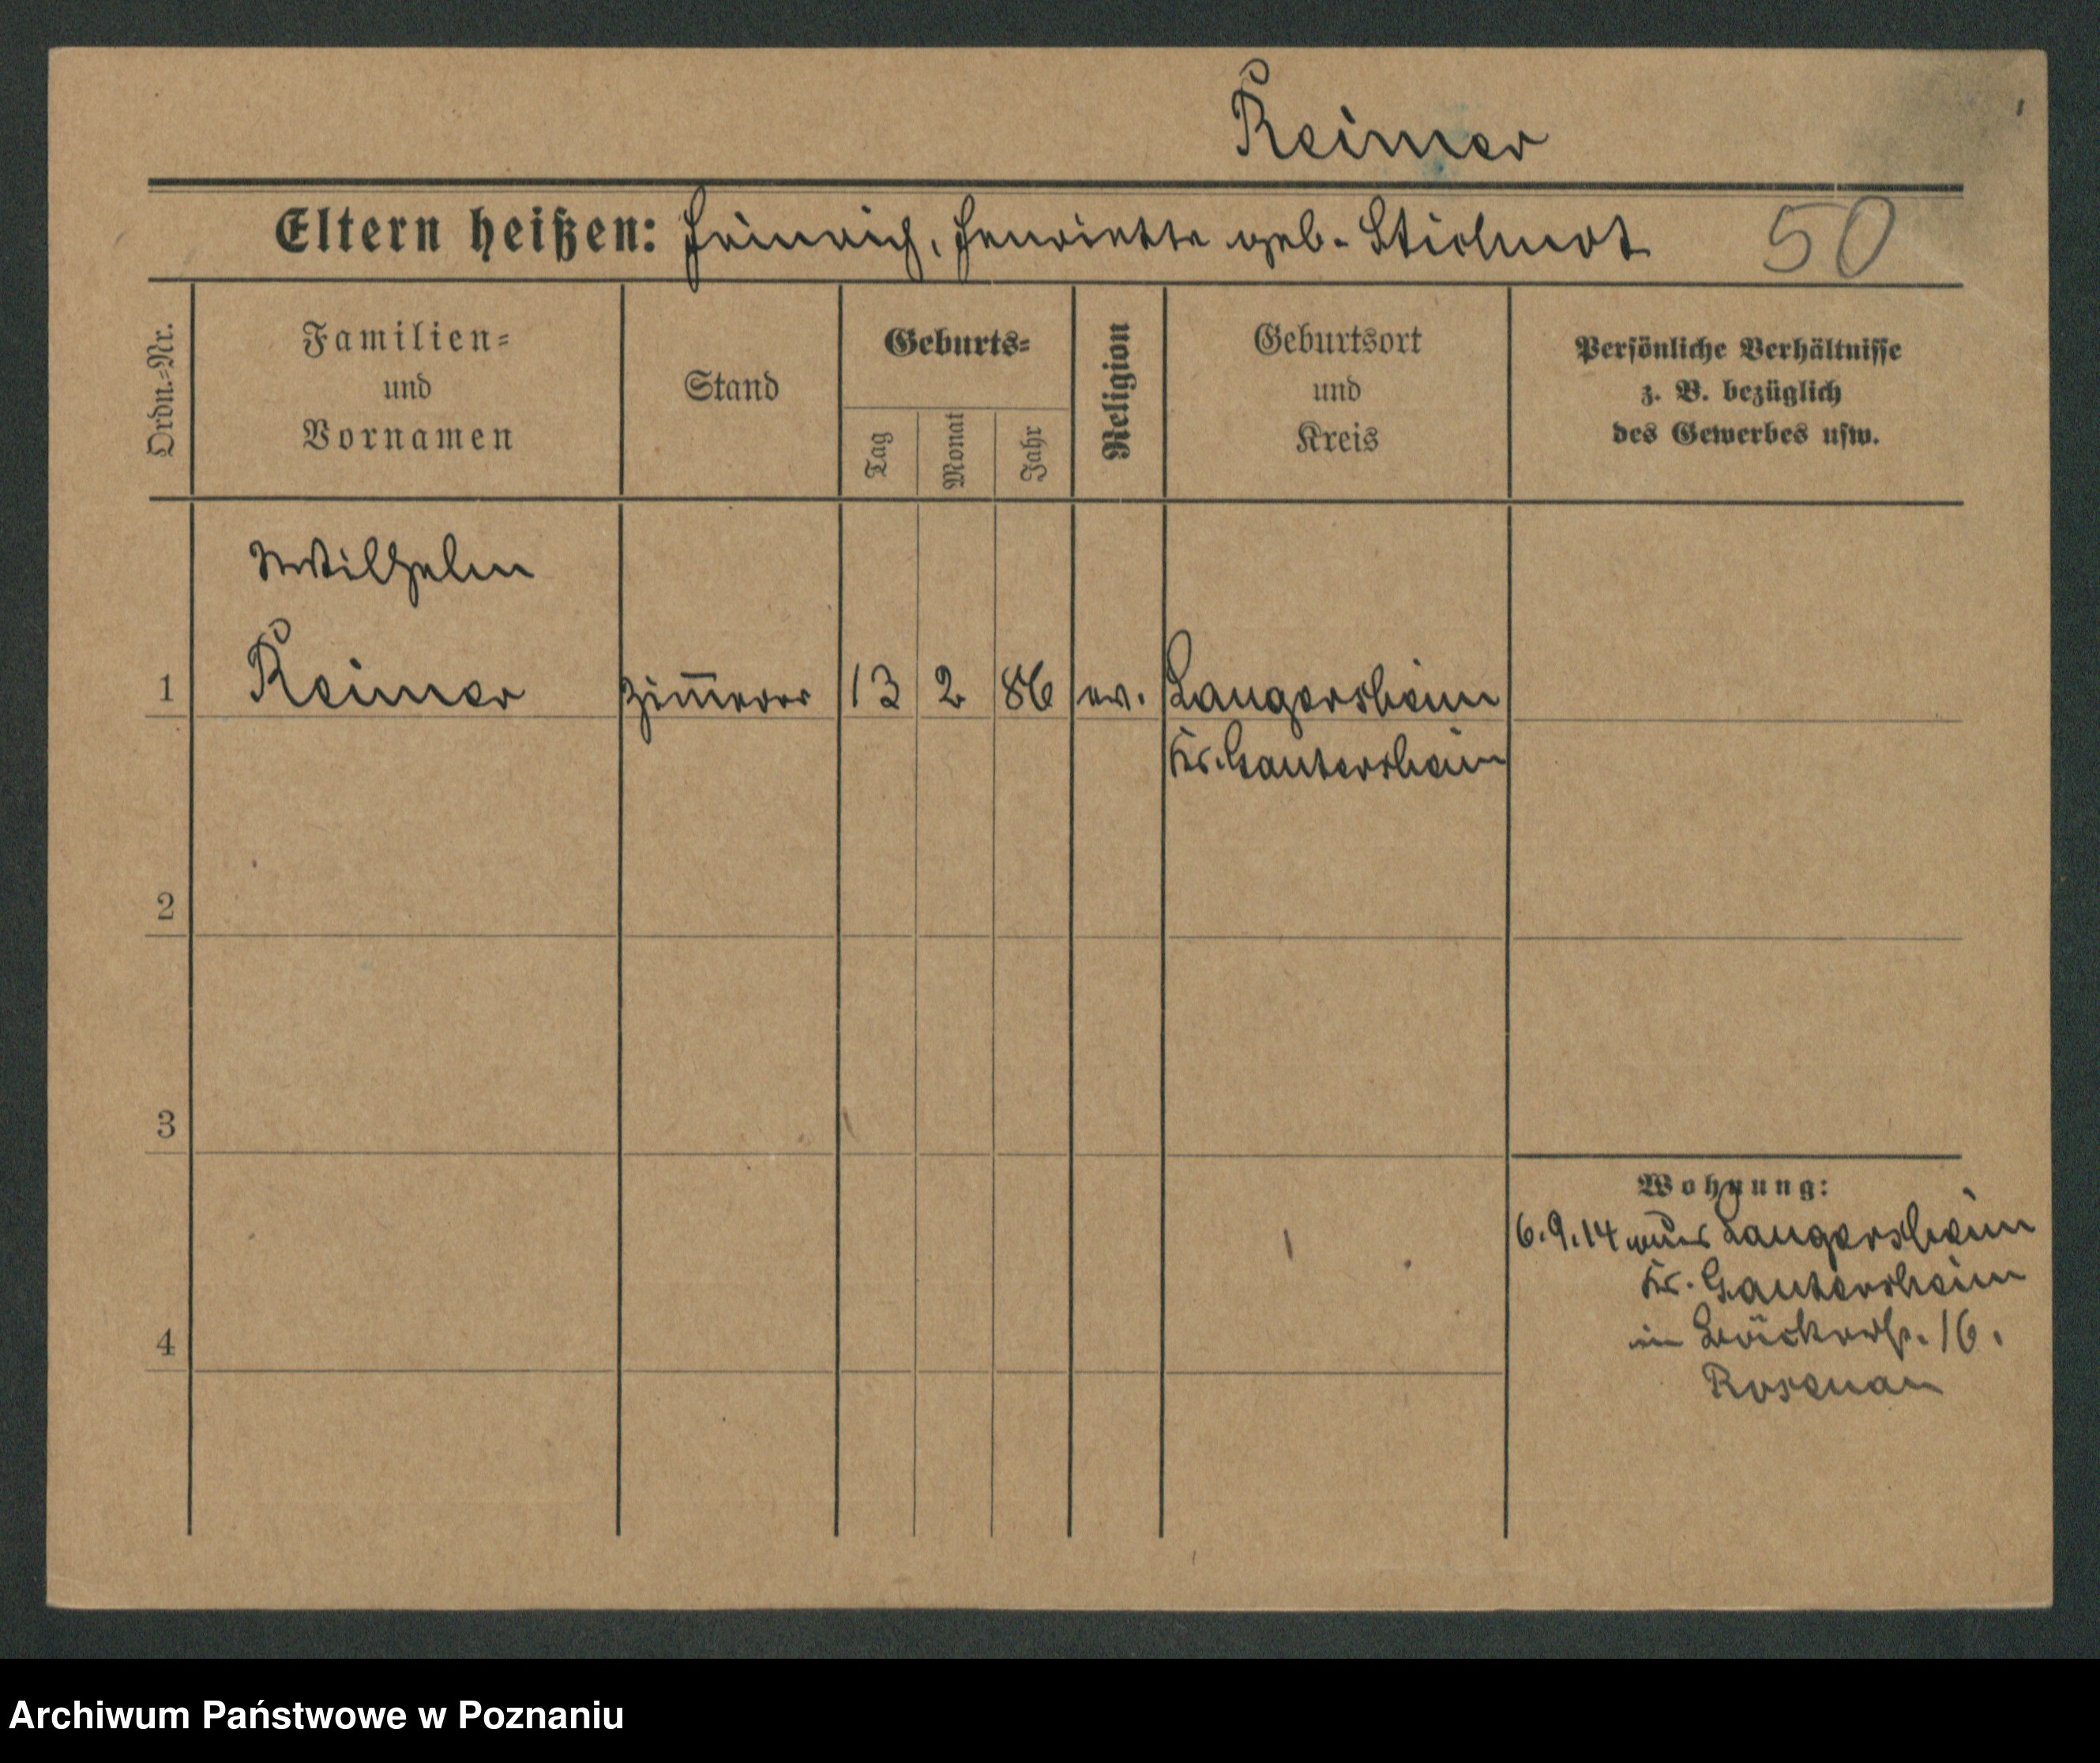 Reimer
Eltern heißen: Heinrich, Henriette geb.
50
Ordn.-Nr.
Familien-
und
Vornamen
Stand
Geburts-
Tag
Monat
Jahr
Religion
Geburtsort
und
Kreis
Persönliche Verhältnisse
z. B. bezüglich
des Gewerbes usw.
Wilhelm
1 Reimer Zim̅erer 13 2 86 ev. Langersheim
Kr. Gandersheim
2
3
Wohnung:
6.9.14 aus Langersheim
Kr. Gandersheim
in 16.
4
Rosenau
Archiwum Państwowe w Poznaniu